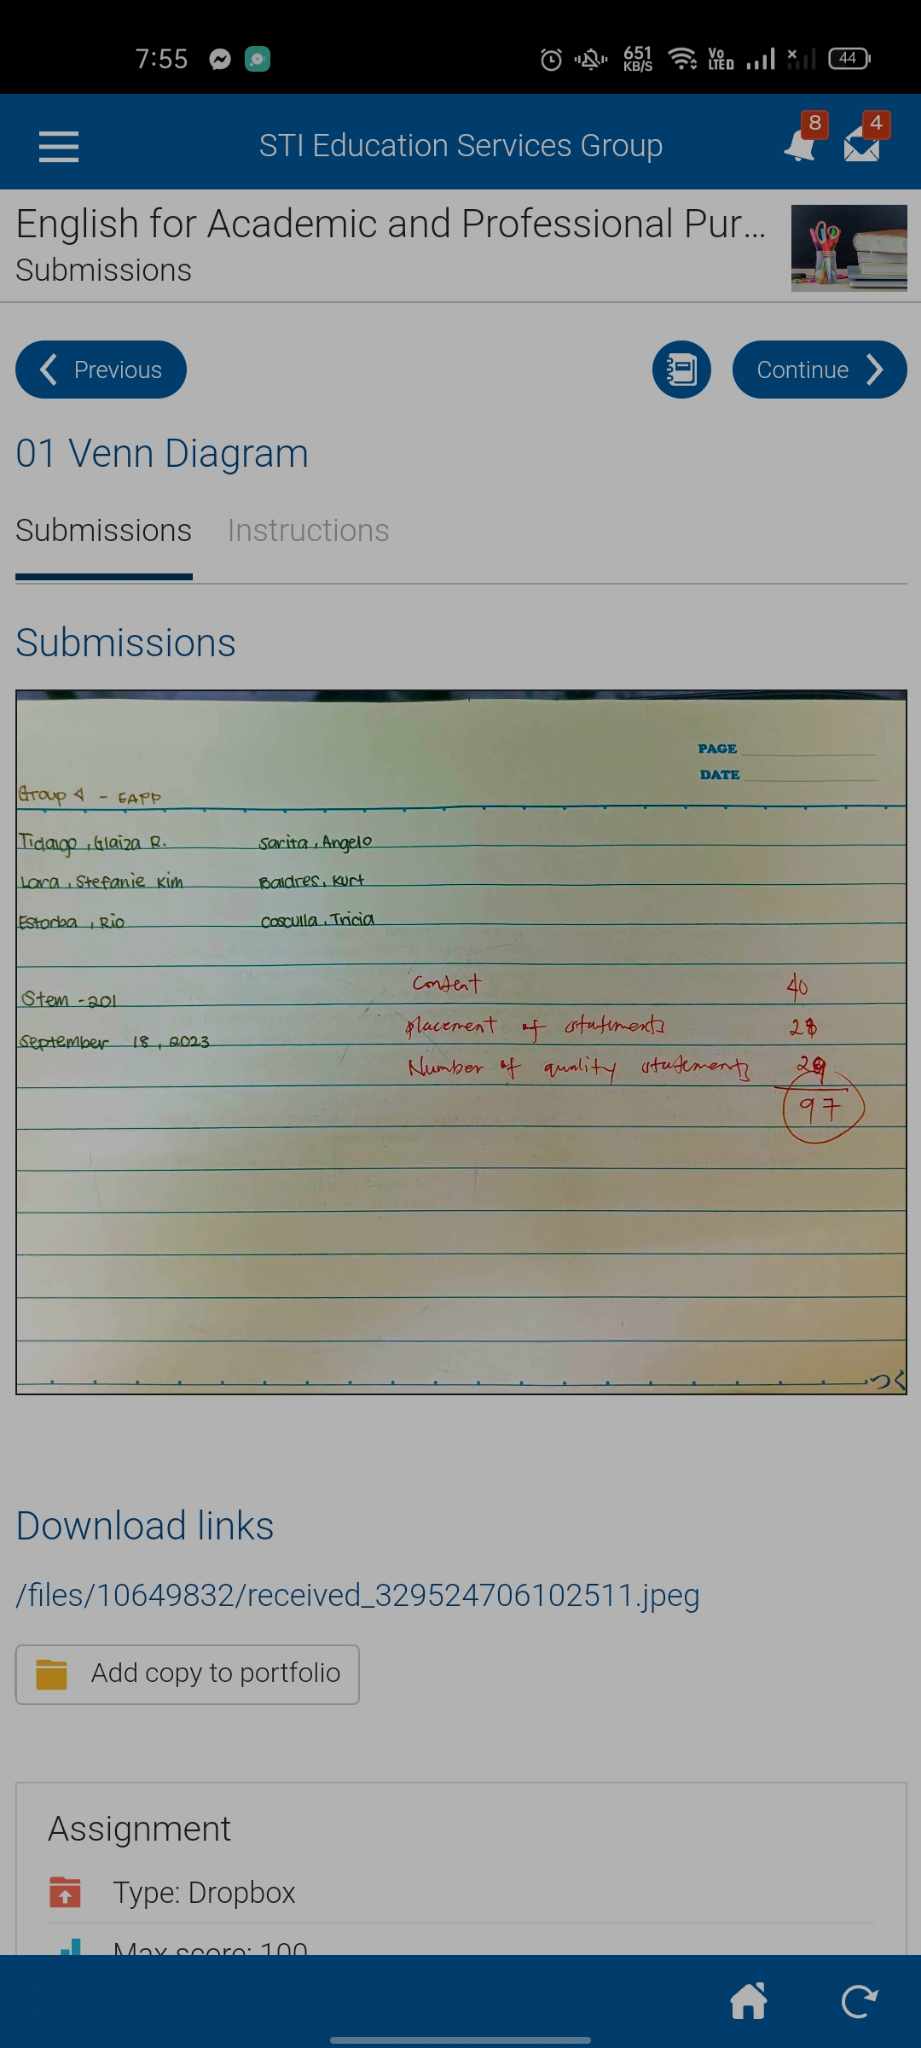 7:55 651 KB/S Vo LTED 44
STI Education Services Group 8 4
English for Academic and Professional Pur...
Submissions
Previous Continue
01 Venn Diagram
Submissions Instructions
Submissions
PAGE
DATE
Group 4 - EAPP
Tidago, Glaiza R. Sarita, Angelo
Lara, Stefanie Kim Baldres, Kurt
Estorba, Rio Cosculla, Tricia
Content 40
Stem - 201
placement of statements 28
September 18, 2023
Number of quality statements 29
97
つく
Download links
/files/10649832/received_329524706102511.jpeg
Add copy to portfolio
Assignment
Type: Dropbox
Max score: 100